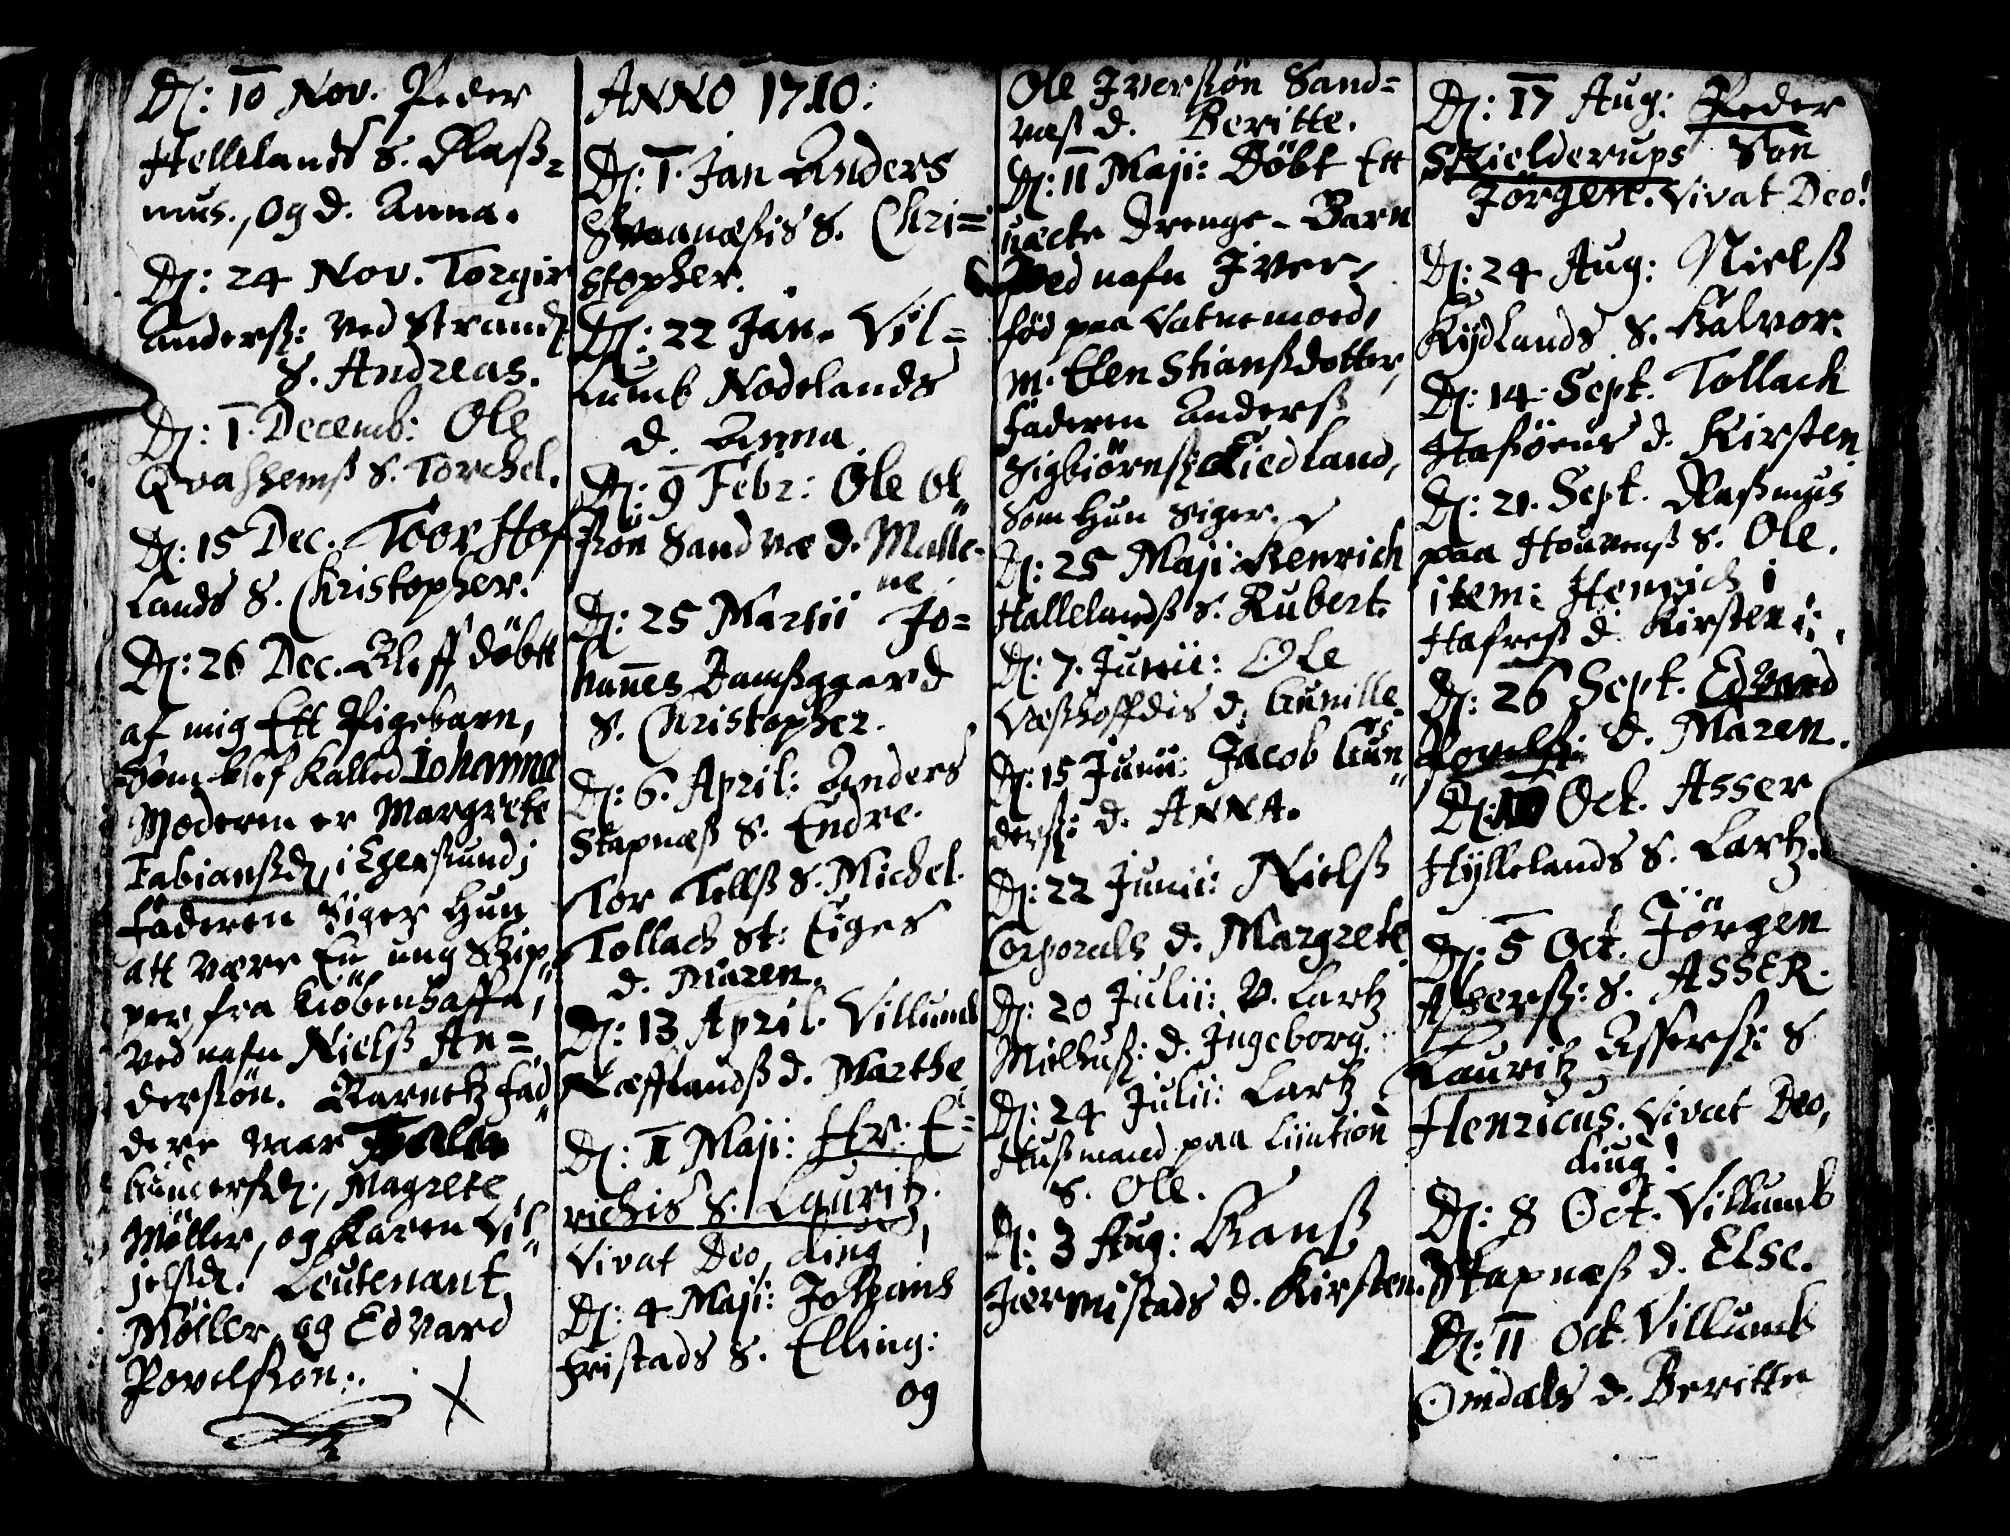 D: 10 Nov. Peder
Hellelands S. Rass=
mus., og d. Anna.
D: 24 Nov. Torgir
Anderss: ved Strand
S. Andreas.
D: 1. Decemb: Ole
S. Torchel.
D: 15 Dec. Toor Haf
lands S. Christopher.
D: 26 Dec. Bleff döbtt
af mig Ett Pigebarn,
Som blef Kalled Johanna
Moderen er Margrete
Fabianssd, i Egersund;
Faderen Siger Hun
att være En ung Skip
per, fra Kiöbenhaffn,
ved nafn Nielss An=
derssön. Barnetz fad
dere vaar
Magrete
Möller, og Karen Vil
jelssd. Leutenant
Möller, og Edvard
Povelssön.
ANNO 1710:
D: 1. Jan Anders
Svaanæssis S. Chri=
stopher.
D: 22 Jan. Vil=
lumb Nodelands
d. Anna.
D: 9 Febr: Ole Ol
ssön Sandvæ d. Malle-
ne
D: 25 Martii Jo=
hannes Damssgaard
S. Christopher.
D: 6. April: Anders
Stapnæss S. Endre.
Tor Tellss S. Michel.
Tollach St: Eiges
d. Maren.
D: 13 April. Villumb
Ræfflandss d. Marthe
D: 1 Maji: Hr: E=
richis S. Lauritz.
Vivat Deo, diug!
D: 4 Maji: Johans
Fristads S. Elling:
og
Ole Iverssön Sand=
væss d. Beritte.
D: 11 Maji: Döbt Ett
uæcte Drenge-Barn
Ved nafn Iver,
föd paa Vatnemoed,
M. Elen Stianssdotter,
Faderen Anderss
Sigbiörnss: Kiedland,
Som Hun Siger.
D: 25 Maji: Henrich
Hallelandss S. Rubert.
D: 7. Junii: Ole
Væsshoffdis d. Gunille
D: 15 Junii: Jacob Gun
derss: d. ANNA.
D: 22 Junii: Nielss
Corporals d. Margrete
D: 20 Julii: V. Lartz
Milhuss: d. Ingeborg.
D: 24 Julii: Lartz
Hussmand paa
S. Ole.
D: 3 Aug: Hanss
Jærmistads d. Kirsten.
D: 17 Aug: Peder
Skielderups Sön
Jörgen. Vivat Deo!
D: 24 Aug: Nielss
Kydlands S. Halvor.
D: 14 Sept. Tollach
Hafsöens d. Kirsten
D: 21. Sept. Rassmus
paa Houvenss S. Ole.
item: Henrich i
Hafress d. Kirsten i:
D: 26 Sept. Edvard
Povelss: d. Maren.
D: Oct. Asser
Hyllelands S. Lartz.
D: 5 Oct. Jörgen
Asserss: S. ASSER.
Lauritz Asserss: S
Henricus. Vivat Deo,
diug!
D: 8 Oct. Villumb
Stapnæss d. Else.
D: 11 Oct. Villumb
Omdals d. Beritte